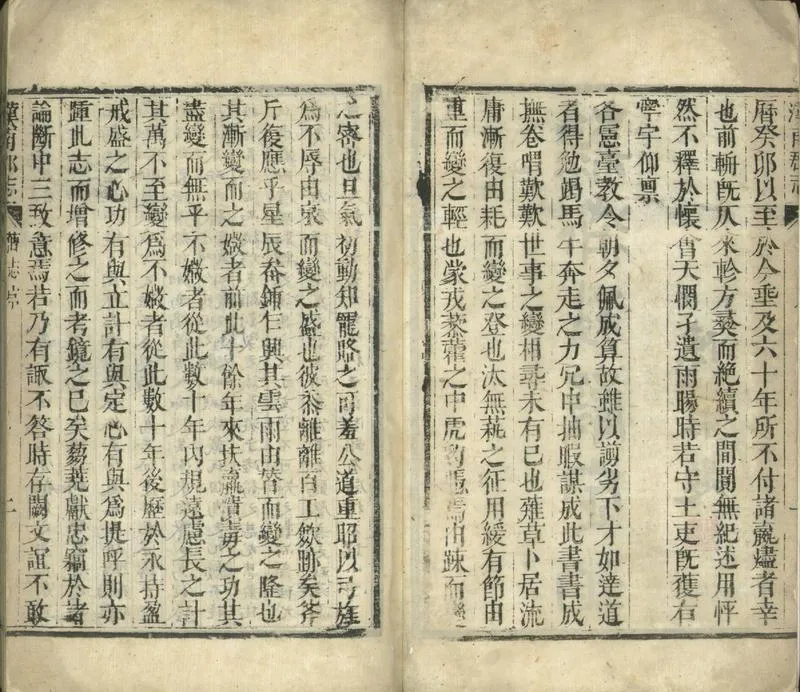 漢南郡志
曆癸卯以至於今垂及六十年所不付諸燼者幸
也前旣仄來軫方羙而絕續之間闃無紀述用怦
然不釋於懷會天憫孑遺雨暘時若守土吏旣獲右
寧宇仰禀
各憲臺教令朝夕佩成算故雖以謭劣下才如逹道
者得勉竭馬牛奔走之力冗中抽暇謀成此書書成
撫卷喟歎歎世事之變相尋未有已也薙草卜居流
庸漸復由耗而變之登也汰無蓺之征用緩有節由
重而變之輕也蒙戎蓁藋之中虎豹焉由踈而變
之密也旦氣初動知寵賂之可羞公道重昭以弓旌
爲不辱由衰而變之盛也彼黍離離百工歛跡矣斧
斤復應乎星辰畚鍤乍興其雲雨由替而變之隆也
其漸變而之媺者前此十餘年來扶羸毒之功其
盡變而無乎不媺者從此數十年內規遠慮長之計
其萬不至變爲不媺者從此數十年後歷於永持盈
戒盛之心功有與立計有與定心有與爲提呼則亦
踵此志而增修之而考鏡之已矣蒭蕘獻忠竊於諸
論斷中三致意焉若乃有諏不答時存闕文誼不敢
漢南郡志 舊志序 二